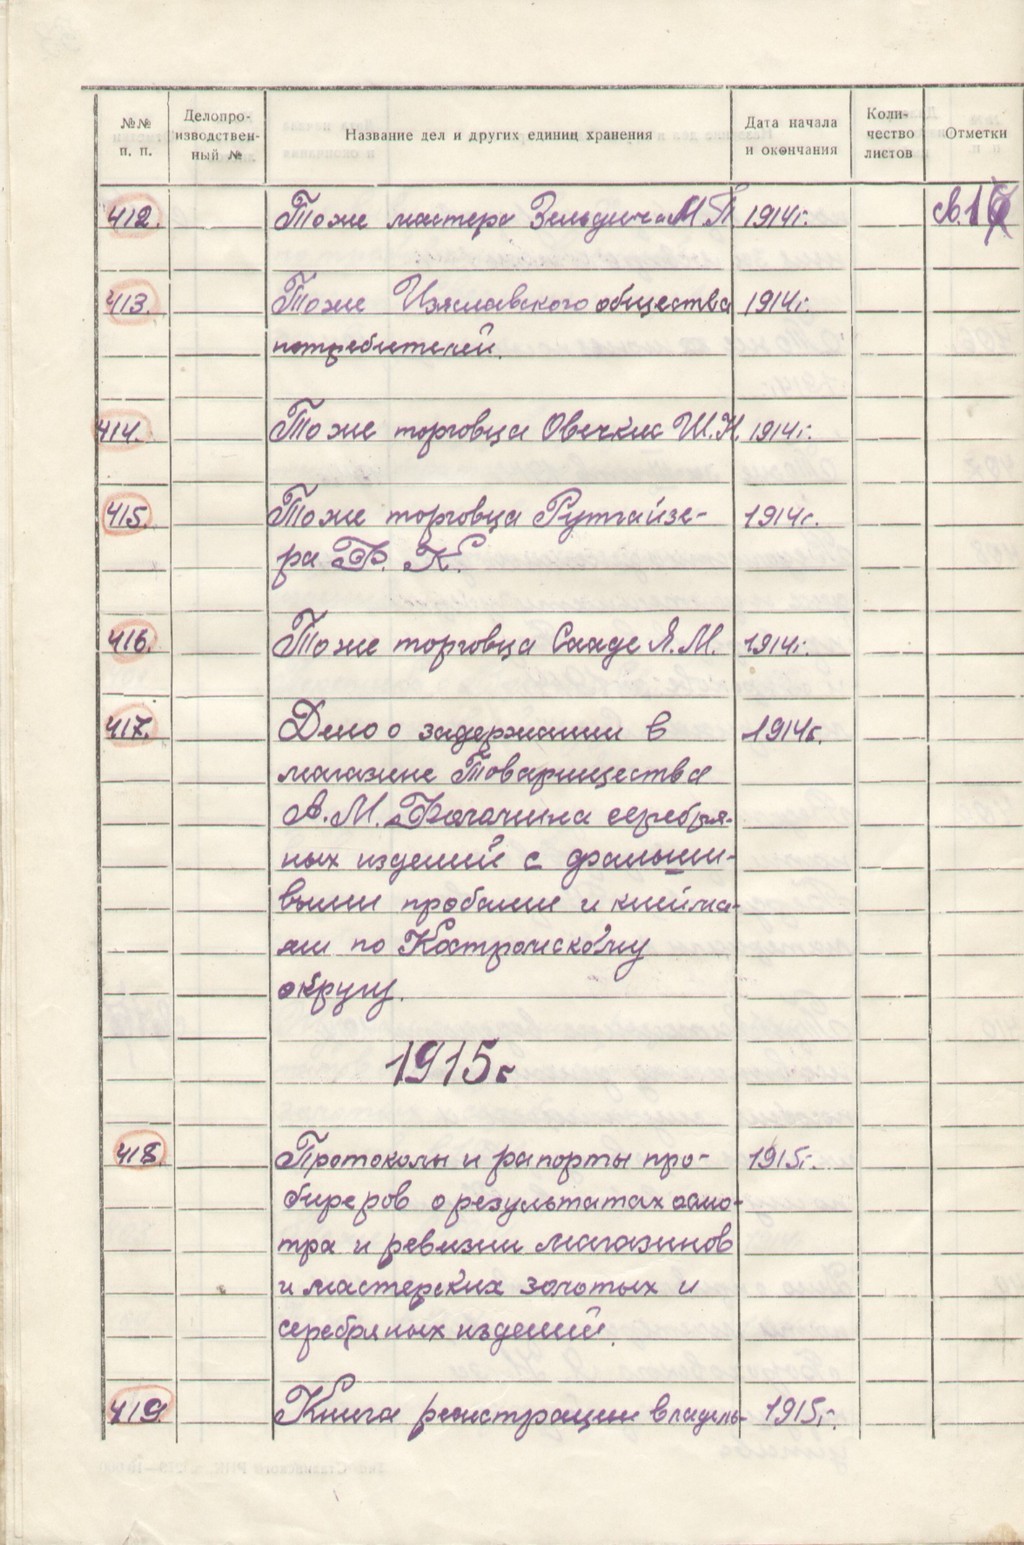 №№ п. п. Делопро-изводствен-ный № Название дел и других единиц хранения Дата начала и окончания Коли-чество листов Отметки
412. Тоже мастера Зельдича М. 1914г.
413. Тоже Изяславского общества 1914г.
потребителей.
414. Тоже торговца Овечкис Ш.Н. 1914г.
415. Тоже торговца Рутгайзе- 1914г.
ра Ф. К.
416. Тоже торговца Сааде Я.М. 1914г.
417. Дело о задержании в 1914г.
магазине Товарищества
А.М. серебря-
ных изделий с фальши-
выми пробами и клейма-
ми по Костромскому
округу.
1915г
418. Протоколы и рапорты про- 1915г.
биреров о результатах осмо-
тра и ревизии магазинов
и мастерских золотых и
серебряных изделий.
419. Книга регистрации владель- 1915г.